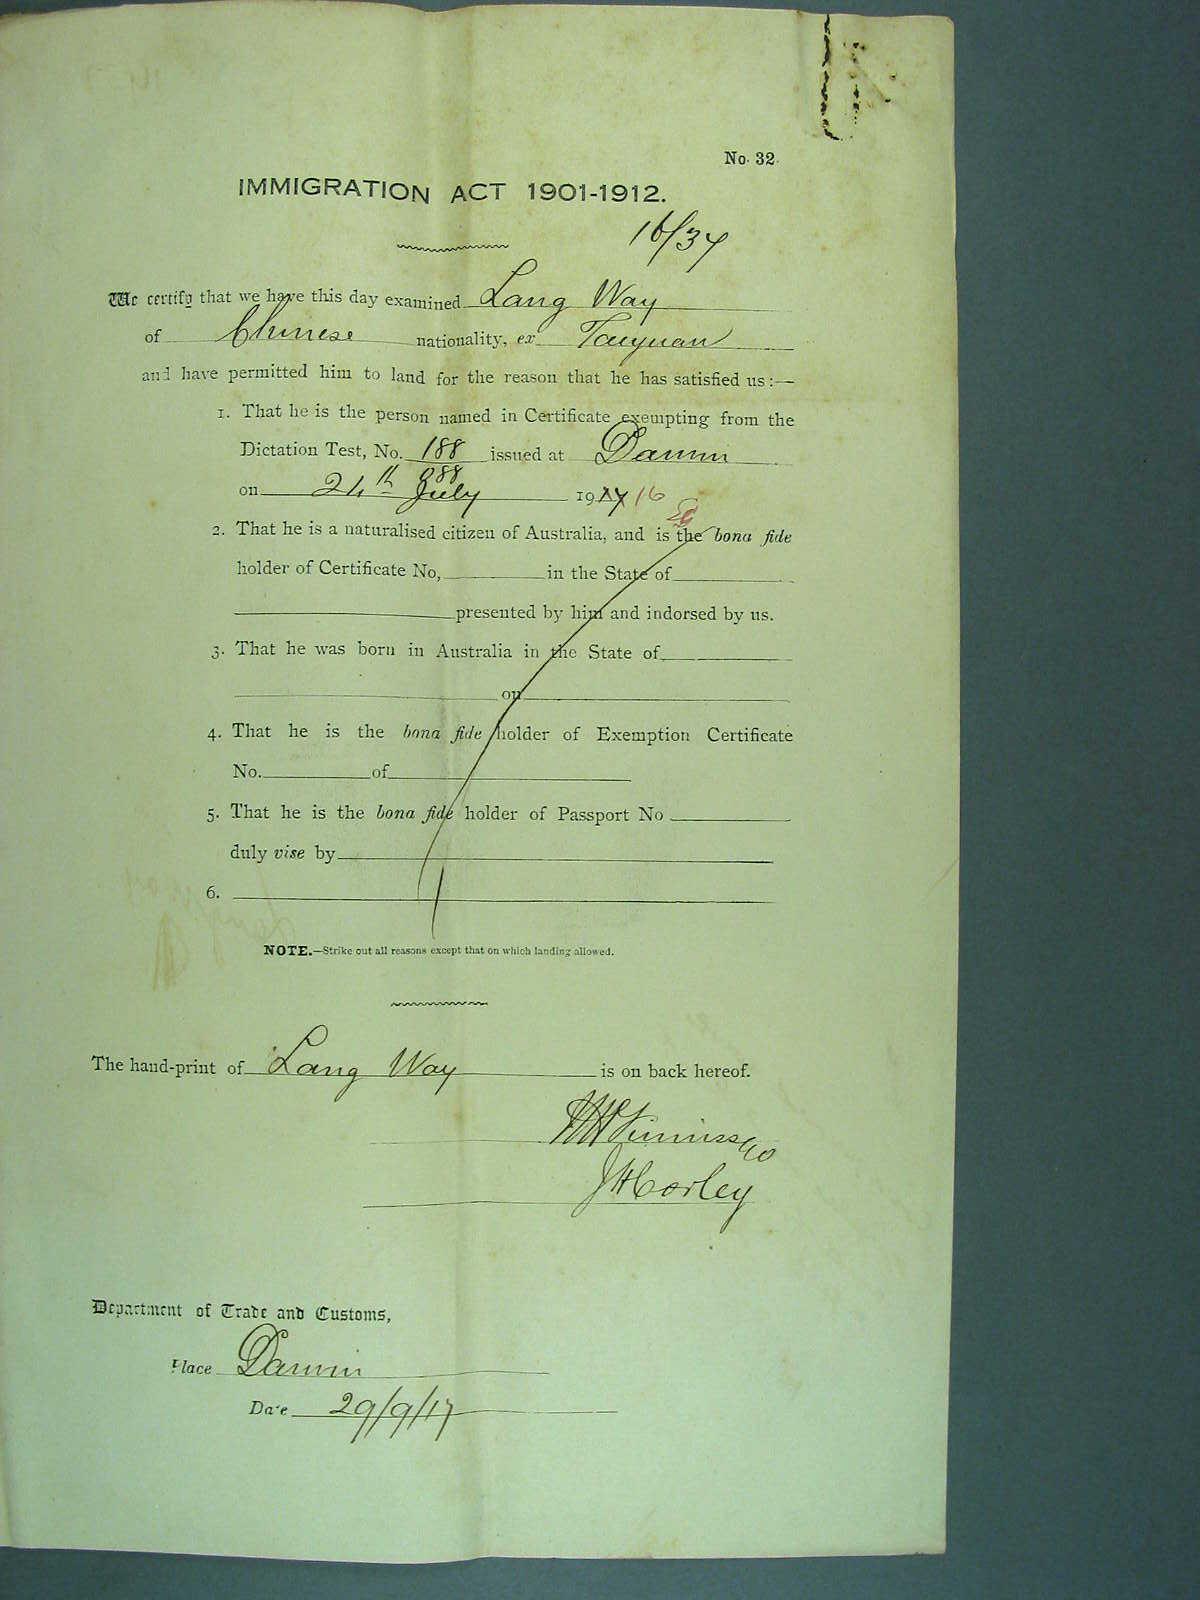 No. 32.
IMMIGRATION ACT 1901-1912.
16/34
We certify that we have this day examined Lang Way
of Chinese nationality, ex Taiyuan
and have permitted him to land for the reason that he has satisfied us:—
1. That he is the person named in Certificate exempting from the
Dictation Test, No. 188 issued at Darwin
088
on 24th July 1917 16
2. That he is a naturalised citizen of Australia, and is the bona fide
holder of Certificate No, in the State of
presented by him and indorsed by us.
3. That he was born in Australia in the State of
on
4. That he is the bona fide holder of Exemption Certificate
No. of
5. That he is the bona fide holder of Passport No
duly vise by
6.
NOTE.—Strike out all reasons except that on which landing allowed.
The hand-print of Lang Way is on back hereof.
JHCorley
Department of Trade and Customs,
Place Darwin
Date 29/9/17